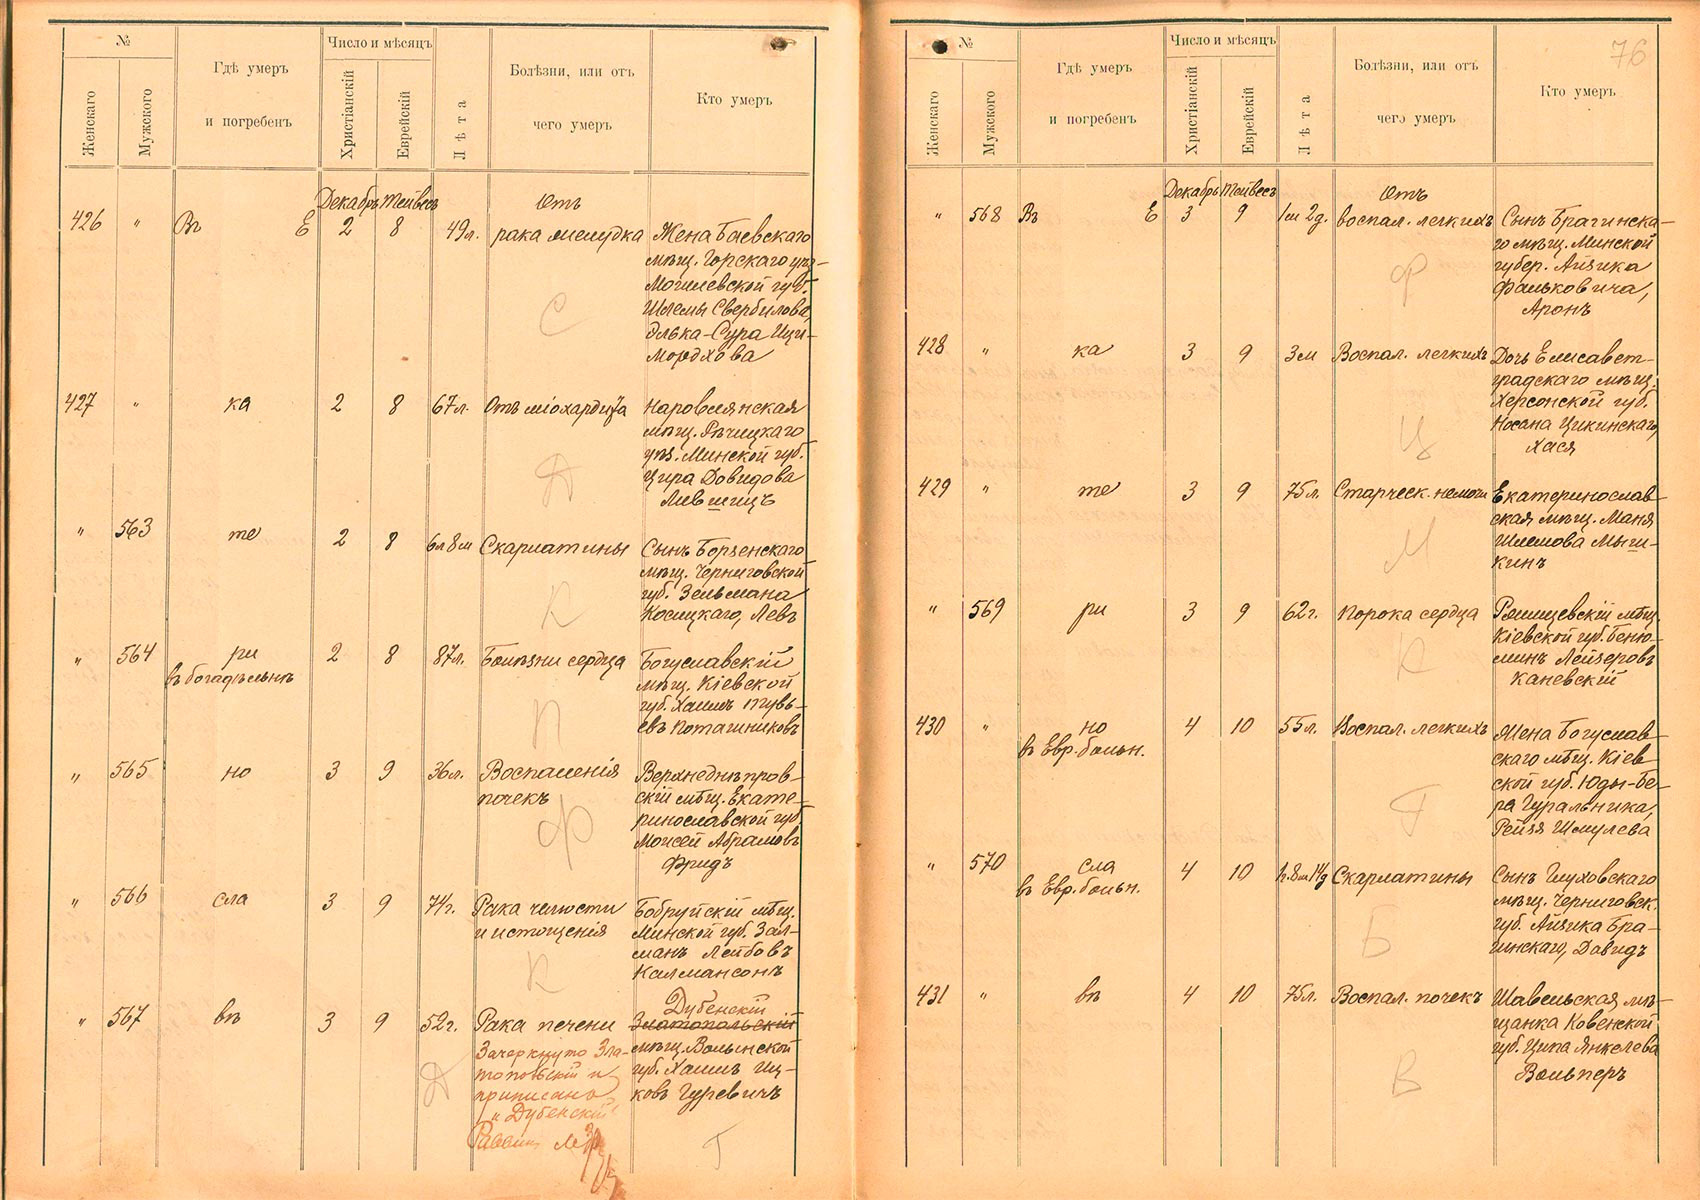 №
Число и мѣсяцъ
Женскаго
Мужского
Гдѣ умеръ
и погребенъ
Христіанскій
Еврейскій
Лѣта
Болѣзни, или отъ
чего умеръ
Кто умеръ
Декабрь Тейвесъ
Отъ
426 " Въ Е 2 8 49 л. рака желудка Жена Баевскаго
мѣщ. Горскаго уѣз-
Могилевской губ.
Шлемы Свербилова,
Элька-Сура Ици-
Мордхова
С
427 " ка 2 8 67 л. Отъ міокардита Наровлянская
мѣщ. Рѣчицкаго
уѣз. Минской губ.
Цира Довидова
Лившицъ
" 563 те 2 8 6л 8м Скарлатины Сынъ Борзенскаго
мѣщ. Черниговской
губ. Зельмана
Косицкаго, Левъ
К
" 564 ри 2 8 87 л. Болѣзни сердца Богуславскій
въ богадѣльнѣ мѣщ. Кіевской
губ. Хаимъ
евъ Поташниковъ
П
" 565 но 3 9 36 л. Воспаленія Верхнеднѣпров-
почекъ скій мѣщ. Екате-
ринославской губ.
Моисей Абрамовъ
Фридъ
Ф
" 566 сла 3 9 74 г. Рака челюсти Бобруйскій мѣщ.
и истощенія Минской губ. Зал-
манъ Лейбовъ
Калмансонъ
К
Дубенскій
" 567 въ 3 9 52 г. Рака печени Златопольскій
мѣщ. Волынской
губ. Хаимъ Иц-
ковъ Гуревичъ
Зачеркнуто Зла-
топольскій и
приписано
"Дубенскій"
Раввинъ
Г
76
№
Число и мѣсяцъ
Женскаго
Мужского
Гдѣ умеръ
и погребенъ
Христіанскій
Еврейскій
Лѣта
Болѣзни, или отъ
чего умеръ
Кто умеръ
Декабрь Тейвесъ
Отъ
" 568 Въ Е 3 9 1м 2д. воспал. легкихъ Сынъ Брагинска-
го мѣщ. Минской
губер. Айзика
Фальковича,
Аронъ
Ф
428 " ка 3 9 3м Воспал. легкихъ Дочь Елисавет-
градскаго мѣщ.
Херсонской губ.
Носана Цикинскаго,
Хася
Ц
429 " те 3 9 75 л. Старческ. немощи Екатеринослав-
ская мѣщ. Маня
Шлемова Мыши-
кинъ
М
" 569 ри 3 9 62 г. Порока сердца Ржищевскій мѣщ.
Кіевской губ. Беню-
минъ Лейзеровъ
Каневскій
К
430 " но 4 10 55 л. Воспал. легкихъ Жена Богуслав-
въ Евр. больн. скаго мѣщ. Кіев-
ской губ. Юды-Бе-
ра Гуральника,
Рейзя Шмулева
Г
" 570 сла 4 10 1г. 8м 14д Скарлатины Сынъ Глуховскаго
въ Евр. больн. мѣщ. Черниговск.
губ. Айзика Бра-
гинскаго, Давидъ
Б
431 " въ 4 10 75 л. Воспал. почекъ Шавельская мѣ-
щанка Ковенской
губ. Ципа Янкелева
Вольперъ
В